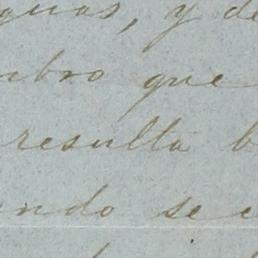 guas, y de
mbro que
resulta b
endo se e